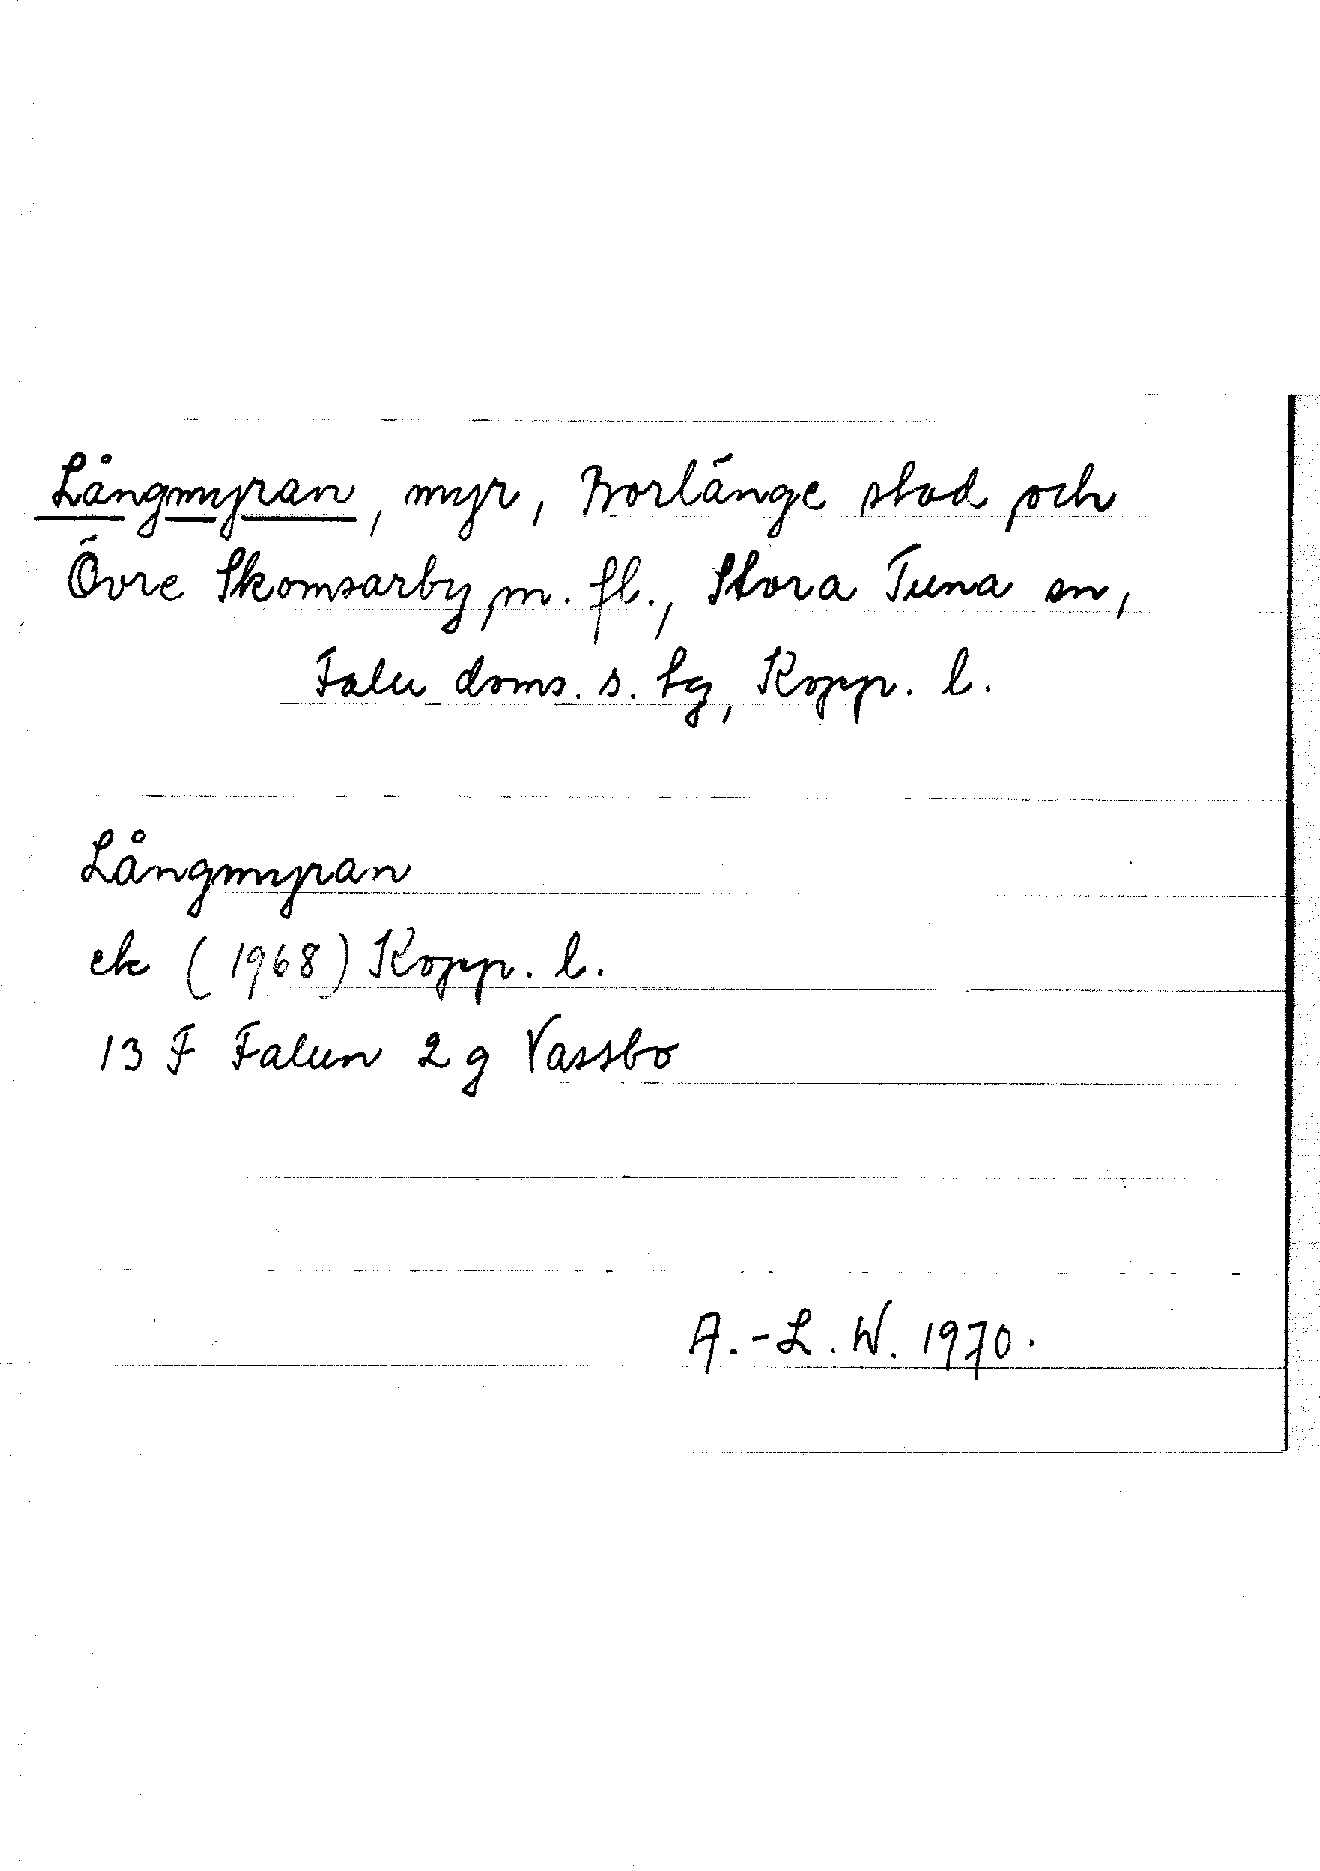 Långmyran, myr, Borlänge stad och
Övre Skomsarby m. fl., Stora Tuna sn,
Falu doms. s. tg, Kopp. l.
Långmyran
ek (1968) Kopp. l.
13 F Falun 2 g Vassbo
A.-L. W. 1970.